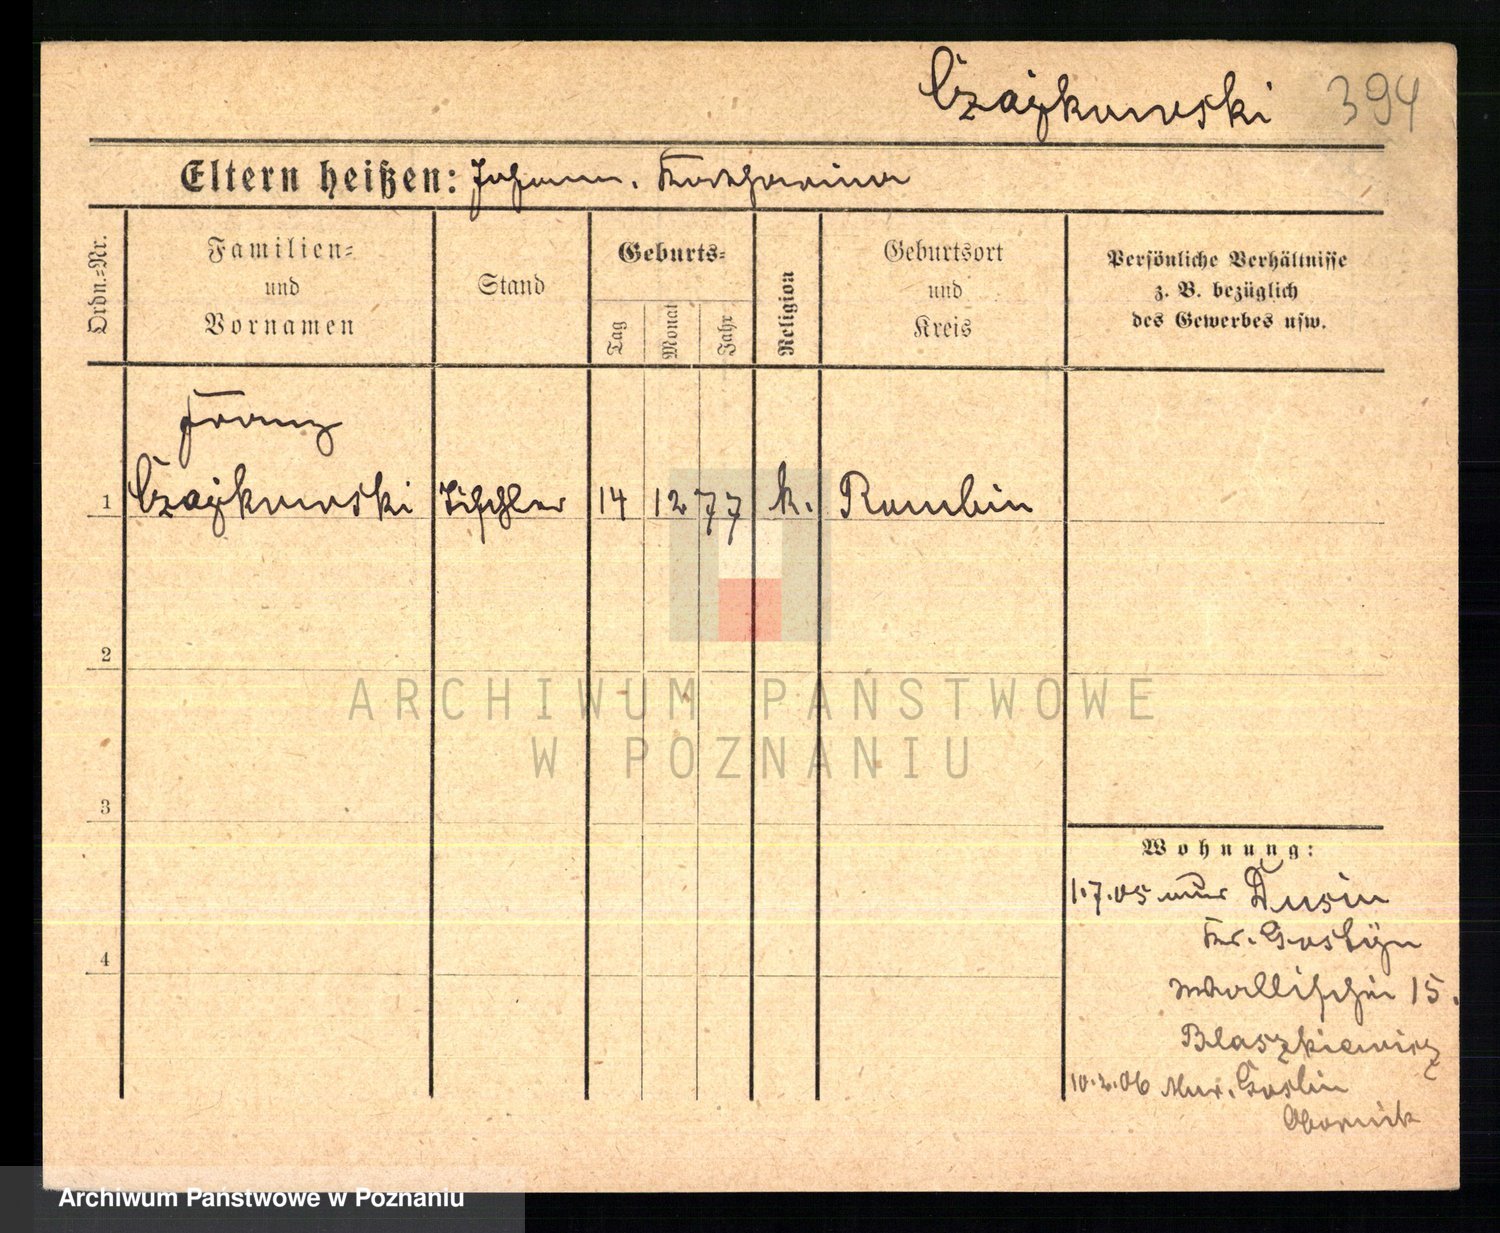 Czajkowski 394
Eltern heißen: Johann. Katharina
Ordn.=Nr.
Familien=
und
Vornamen
Stand
Geburts=
Tag
Monat
Jahr
Religion
Geburtsort
und
Kreis
Persönliche Verhältnisse
z. B. bezüglich
des Gewerbes usw.
Franz
1 Czajkowski Tischler 14 12 77 k. Rombin
2
3
4
Wohnung:
1.7.05 Dusin
Kr. Gostyn
Wallischei 15.
Blaszkiewicz
10.2.06 Mur. Goslin
Obornik
ARCHIWUM PAŃSTWOWE
W POZNANIU
Archiwum Państwowe w Poznaniu